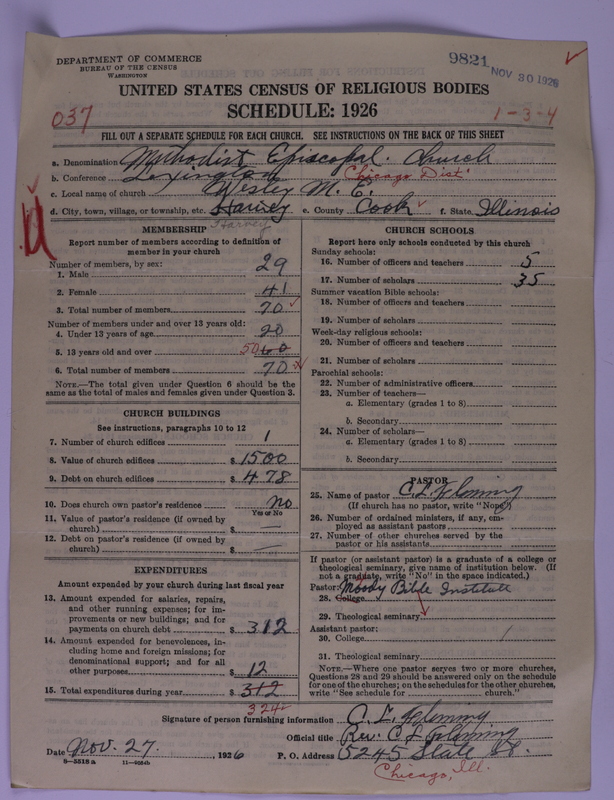 DEPARTMENT OF COMMERCE
BUREAU OF THE CENSUS
WASHINGTON
9821
NOV 30 1926
UNITED STATES CENSUS OF RELIGIOUS BODIES
SCHEDULE: 1926
037
1-3-4
FILL OUT A SEPARATE SCHEDULE FOR EACH CHURCH. SEE INSTRUCTIONS ON THE BACK OF THIS SHEET
a. Denomination Methodist Episcopal Church
b. Conference Lexington Chicago Dist.
c. Local name of church Wesley M. E.
d. City, town, village, or township, etc. Harvey e. County Cook f. State Illinois
Harvey
MEMBERSHIP
Report number of members according to definition of member in your church
Number of members, by sex:
1. Male 29
2. Female 41
3. Total number of members 70
Number of members under and over 13 years old:
4. Under 13 years of age 20
5. 13 years old and over 50 60
6. Total number of members 70
NOTE.—The total given under Question 6 should be the same as the total of males and females given under Question 3.
CHURCH BUILDINGS
See instructions, paragraphs 10 to 12
7. Number of church edifices 1
8. Value of church edifices $ 1500
9. Debt on church edifices $ 478
10. Does church own pastor's residence? No
Yes or No
11. Value of pastor's residence (if owned by church) $ —
12. Debt on pastor's residence (if owned by church) $ —
EXPENDITURES
Amount expended by church during last fiscal year
13. Amount expended for salaries, repairs, and other running expenses; for improvements or new buildings; and for payments on church debt $ 312
14. Amount expended for benevolences, including home and foreign missions; for denominational support; and for all other purposes $ 12
15. Total expenditures during year $ 312
324
CHURCH SCHOOLS
Report here only schools conducted by this church
Sunday schools:
16. Number of officers and teachers 5
17. Number of scholars 35
Summer vacation Bible schools:
18. Number of officers and teachers
19. Number of scholars
Week-day religious schools:
20. Number of officers and teachers
21. Number of scholars
Parochial schools:
22. Number of administrative officers
23. Number of teachers—
a. Elementary (grades 1 to 8)
b. Secondary
24. Number of scholars—
a. Elementary (grades 1 to 8)
b. Secondary
PASTOR
25. Name of pastor C. L. Fleming
(If church has no pastor, write "None")
26. Number of ordained ministers, if any, employed as assistant pastors
27. Number of other churches served by the pastor or his assistants
If pastor (or assistant pastor) is a graduate of a college or theological seminary, give name of institution below. (If not a graduate, write "No" in the space indicated.)
Pastor: Moody Bible Institute
28. College
29. Theological seminary
Assistant pastor:
30. College
31. Theological seminary
NOTE.—Where one pastor serves two or more churches, Questions 28 and 29 should be answered only on the schedule for one of the churches; on the schedules for the other churches, write "See schedule for church."
Signature of person furnishing information C. L. Fleming
Official title Rev. C L Fleming
Date Nov. 27. 1926 P. O. Address 5245 State St.
8—5518 a
Chicago, Ill.